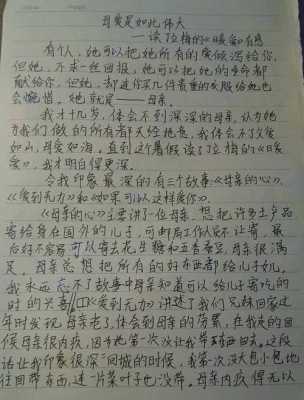 母爱是如此伟大
——读拉梅的《暖爱》有感
有个人,她可以把她所有的爱倾泻给你,
但她,不求一丝回报,她可以把她的生命都
献给你,但她,却连你买几件贵重的衣服给她也
会惋惜。她就是——母亲。
我才十几岁,体会不到深深的母亲,认为她
为我们做的所有都天经地义,我体会不了父爱
如山,母爱如海,直到这个暑假读了拉梅的《暖
爱》,我才明白得更深。
令我印象最深的有三个故事《母亲的心》、
《爱到无力》和《如果可以这样爱你》。
《母亲的心》主要讲了一位母亲,想把许多土产品
寄给身在国外的儿子,可邮局工作人员不让寄,最
后好不容易可以寄去花生糖和五香蚕豆,母亲很满
足。母亲总想把所有的好东西都给儿女们。
我永远忘不了故事中母亲知道可以给儿子寄吃的
时的关喜《爱到无力》讲述了我们兄妹回家过
年时发现母亲老了,体会到母亲的劳累,在我走的回
时候母亲很内疚,因为她第一次没让我带东西回去。这段
话让我印象很深:“回城的时候,我第一次没大包小包地
往回带东西,连一片菜叶子也没带。母亲内疚得无以